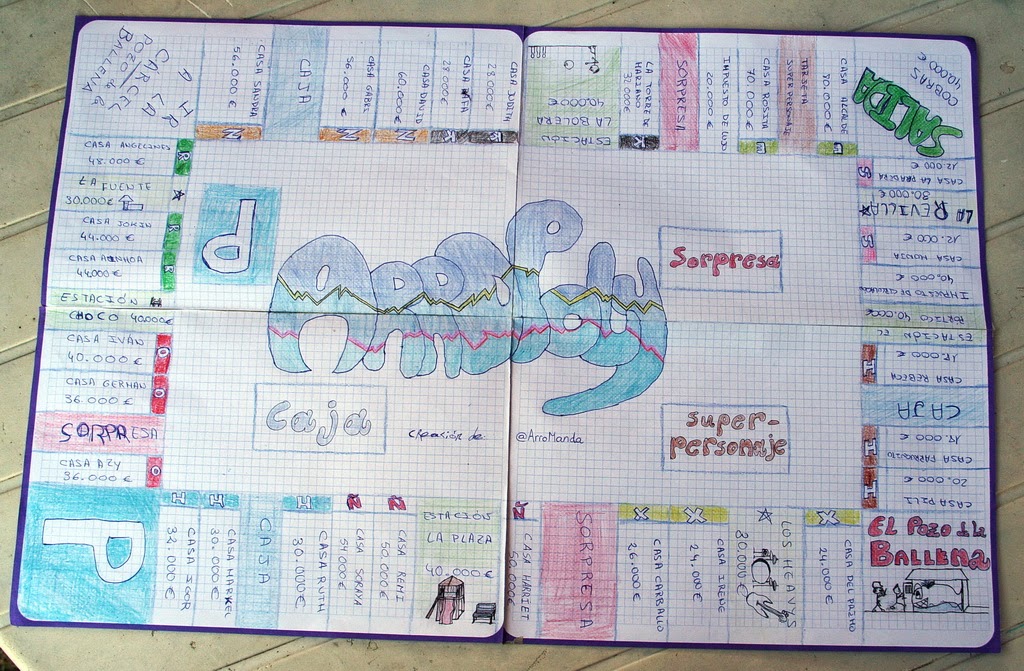 A IR
A LA
CÁRCEL
POZO de la
BALLENA
CASA SANDRA
56.000 €
CAJA
CASA GABRI
56.000 €
CASA DAVID
60.000 €
CASA RAFA
28.000 €
CASA JUDITH
28.000 €
ESTACIÓN
LA BOLERA
40.000€
LA TORRE DE
MARIANO
30.000€
SORPRESA
IMPUESTO DE LUJO
20.000€
CASA ROSITA
70.000€
TARJETA
SUPER PERSONAJE
CASA ALCALDE
70.000€
COBRAS
40.000 €
SALIDA
CASA ANGELINES
48.000 €
LA FUENTE
30.000€
CASA JOKIN
44.000 €
CASA AINHOA
44.000€
ESTACIÓN
CHOCO 40.000€
CASA IVÁN
40.000 €
CASA GERMAN
36.000 €
SORPRESA
CASA AZY
36.000 €
P
Sorpresa
Caja
super-
personaje
creación de @ArroManda
CASA LA PRADERA
12.000 €
LA REVILLA
30.000€
CASA MONJA
12.000 €
IMPUESTO DE CIRCULACION
40.000 €
ESTACIÓN EL
PORTICO 40.000€
CASA REBECA
17.000 €
CAJA
CASA PARRAQUITO
17.000 €
CASA PILI
20.000 €
EL POZO de la
BALLENA
P
CASA IGOR
32.000 €
CASA MARKEL
30.000 €
CAJA
CASA RUTH
30.000 €
CASA SORAYA
54.000 €
CASA REMI
50.000 €
ESTACIÓN
LA PLAZA
40.000 €
CASA HARRIET
50.000€
SORPRESA
CASA CARBALLO
26.000 €
CASA IRENE
24.000 €
LOS HEAVYS
30.000€
CASA DEL PAIMO
24.000 €